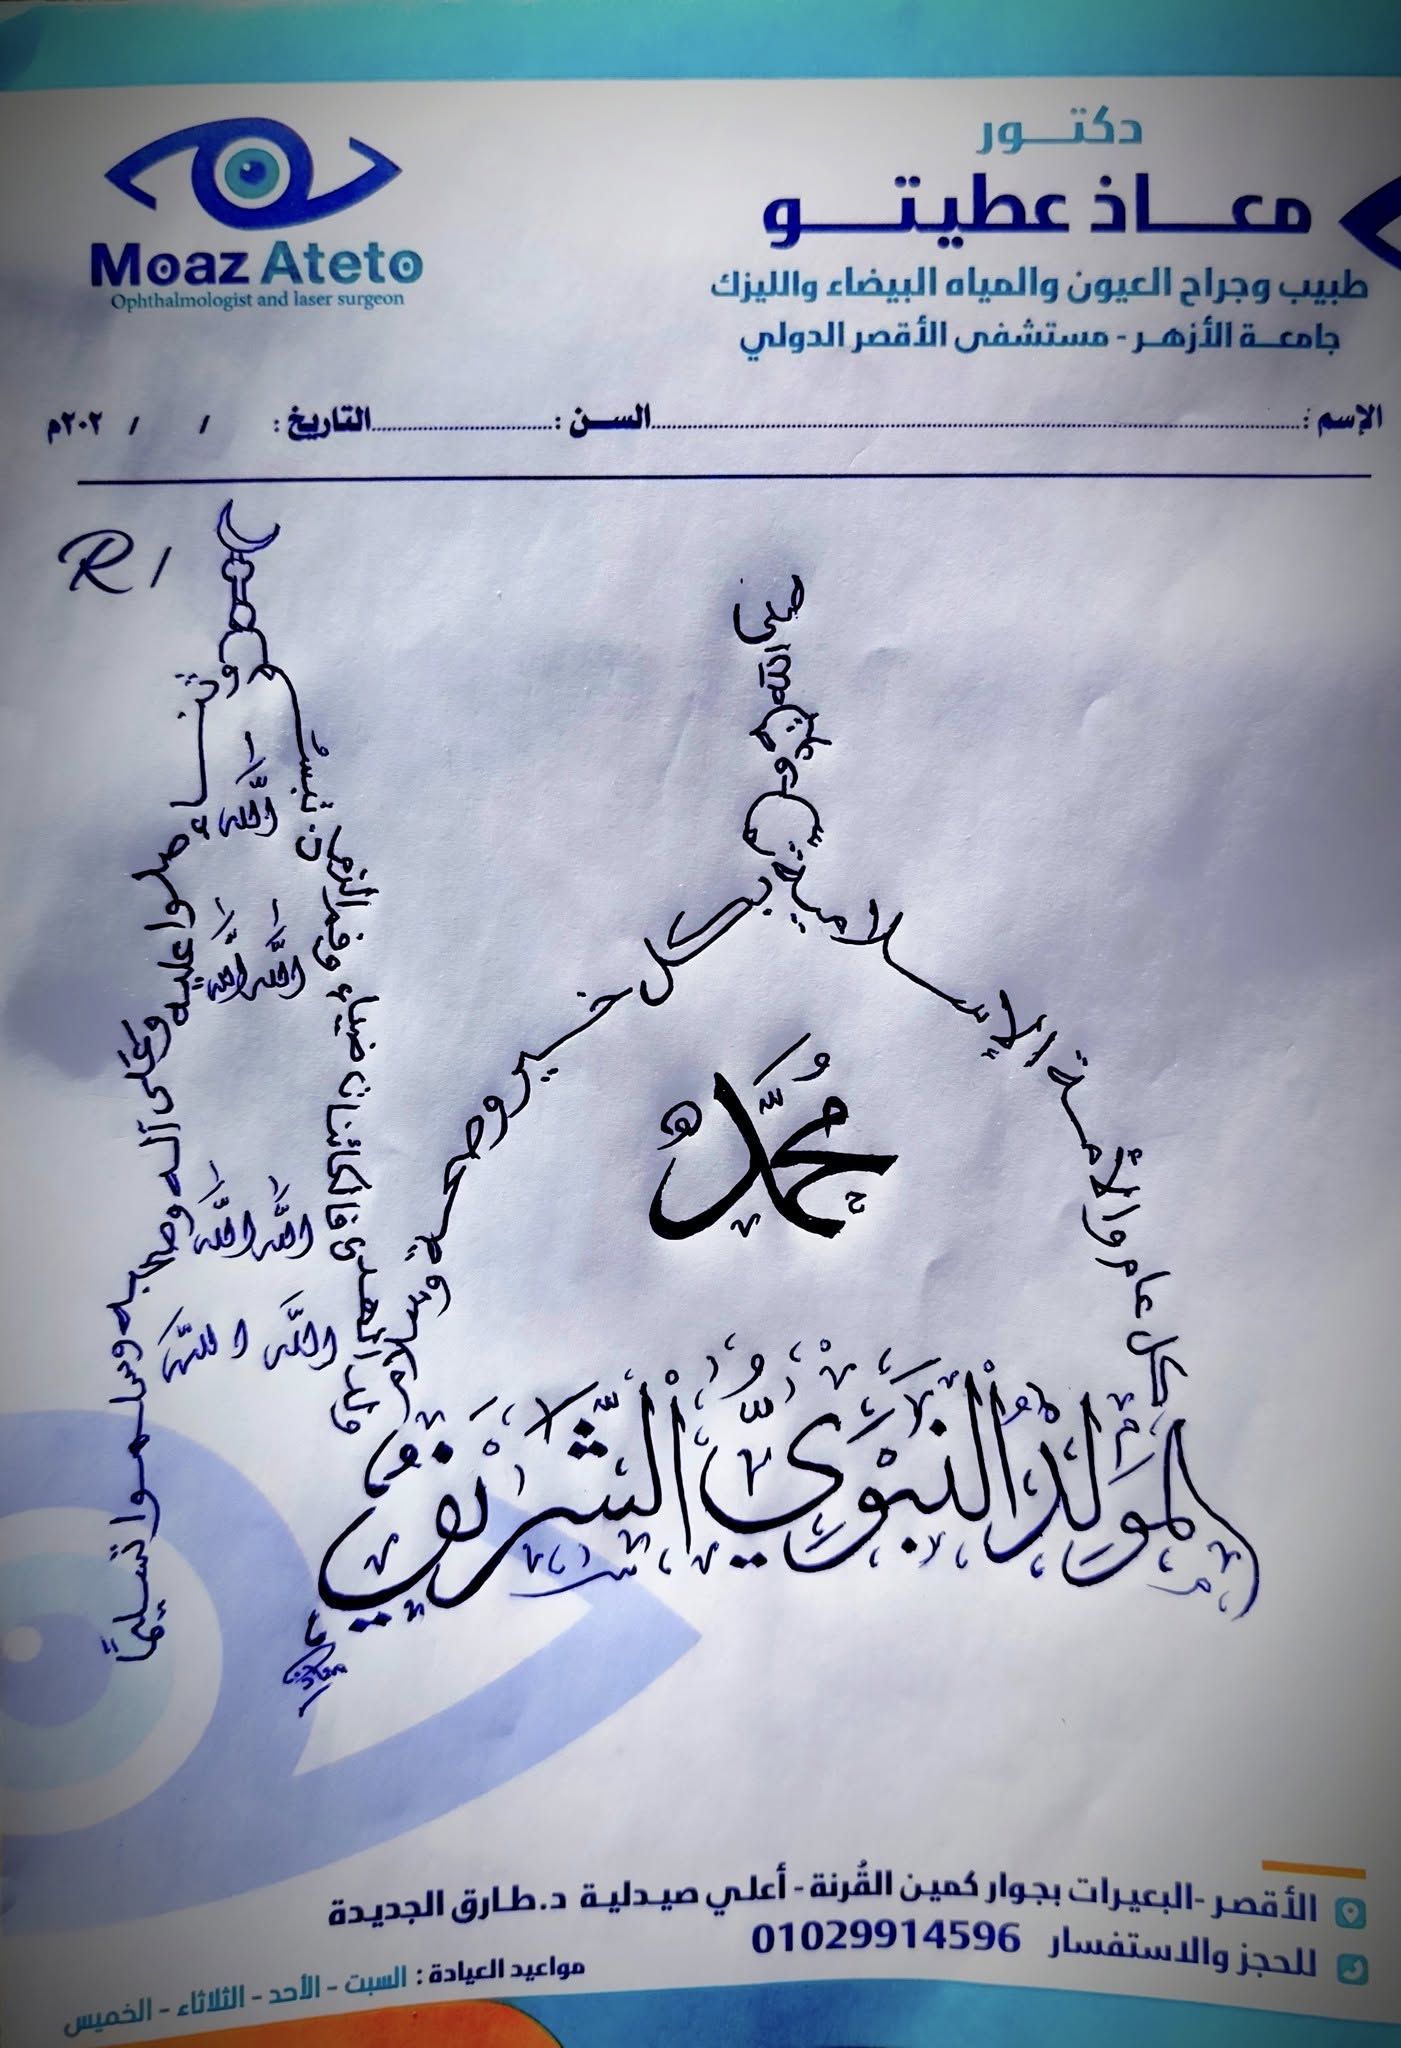 دكتور
معاذ عطيتو
طبيب وجراح العيون والمياه البيضاء والليزك
جامعة الأزهر - مستشفى الأقصر الدولي
Moaz Ateto
Ophthalmologist and laser surgeon
الإسم : السن : التاريخ : / / ٢٠٢م
R/
صلى
الله
عليه
و
سلم
كل عام والأمة الإسلامية
بكل خير وصحة وسلام
مُحَمَّدٌ
المَولِدُ النَّبَوِيُّ الشَّرِيفُ
ولد الهدى فالكائنات ضياء وفم الزمان تبسم
وثناء
صلوا عليه وعلى آله وصحبه وسلموا تسليمًا
اللَّه
اللَّه اللَّه
اللَّه اللَّه
اللَّه اللَّه
معاذ
الأقصر -البعيرات بجوار كمين القُرنة - أعلي صيدلية د.طارق الجديدة
للحجز والاستفسار 01029914596
مواعيد العيادة : السبت - الأحد - الثلاثاء - الخميس